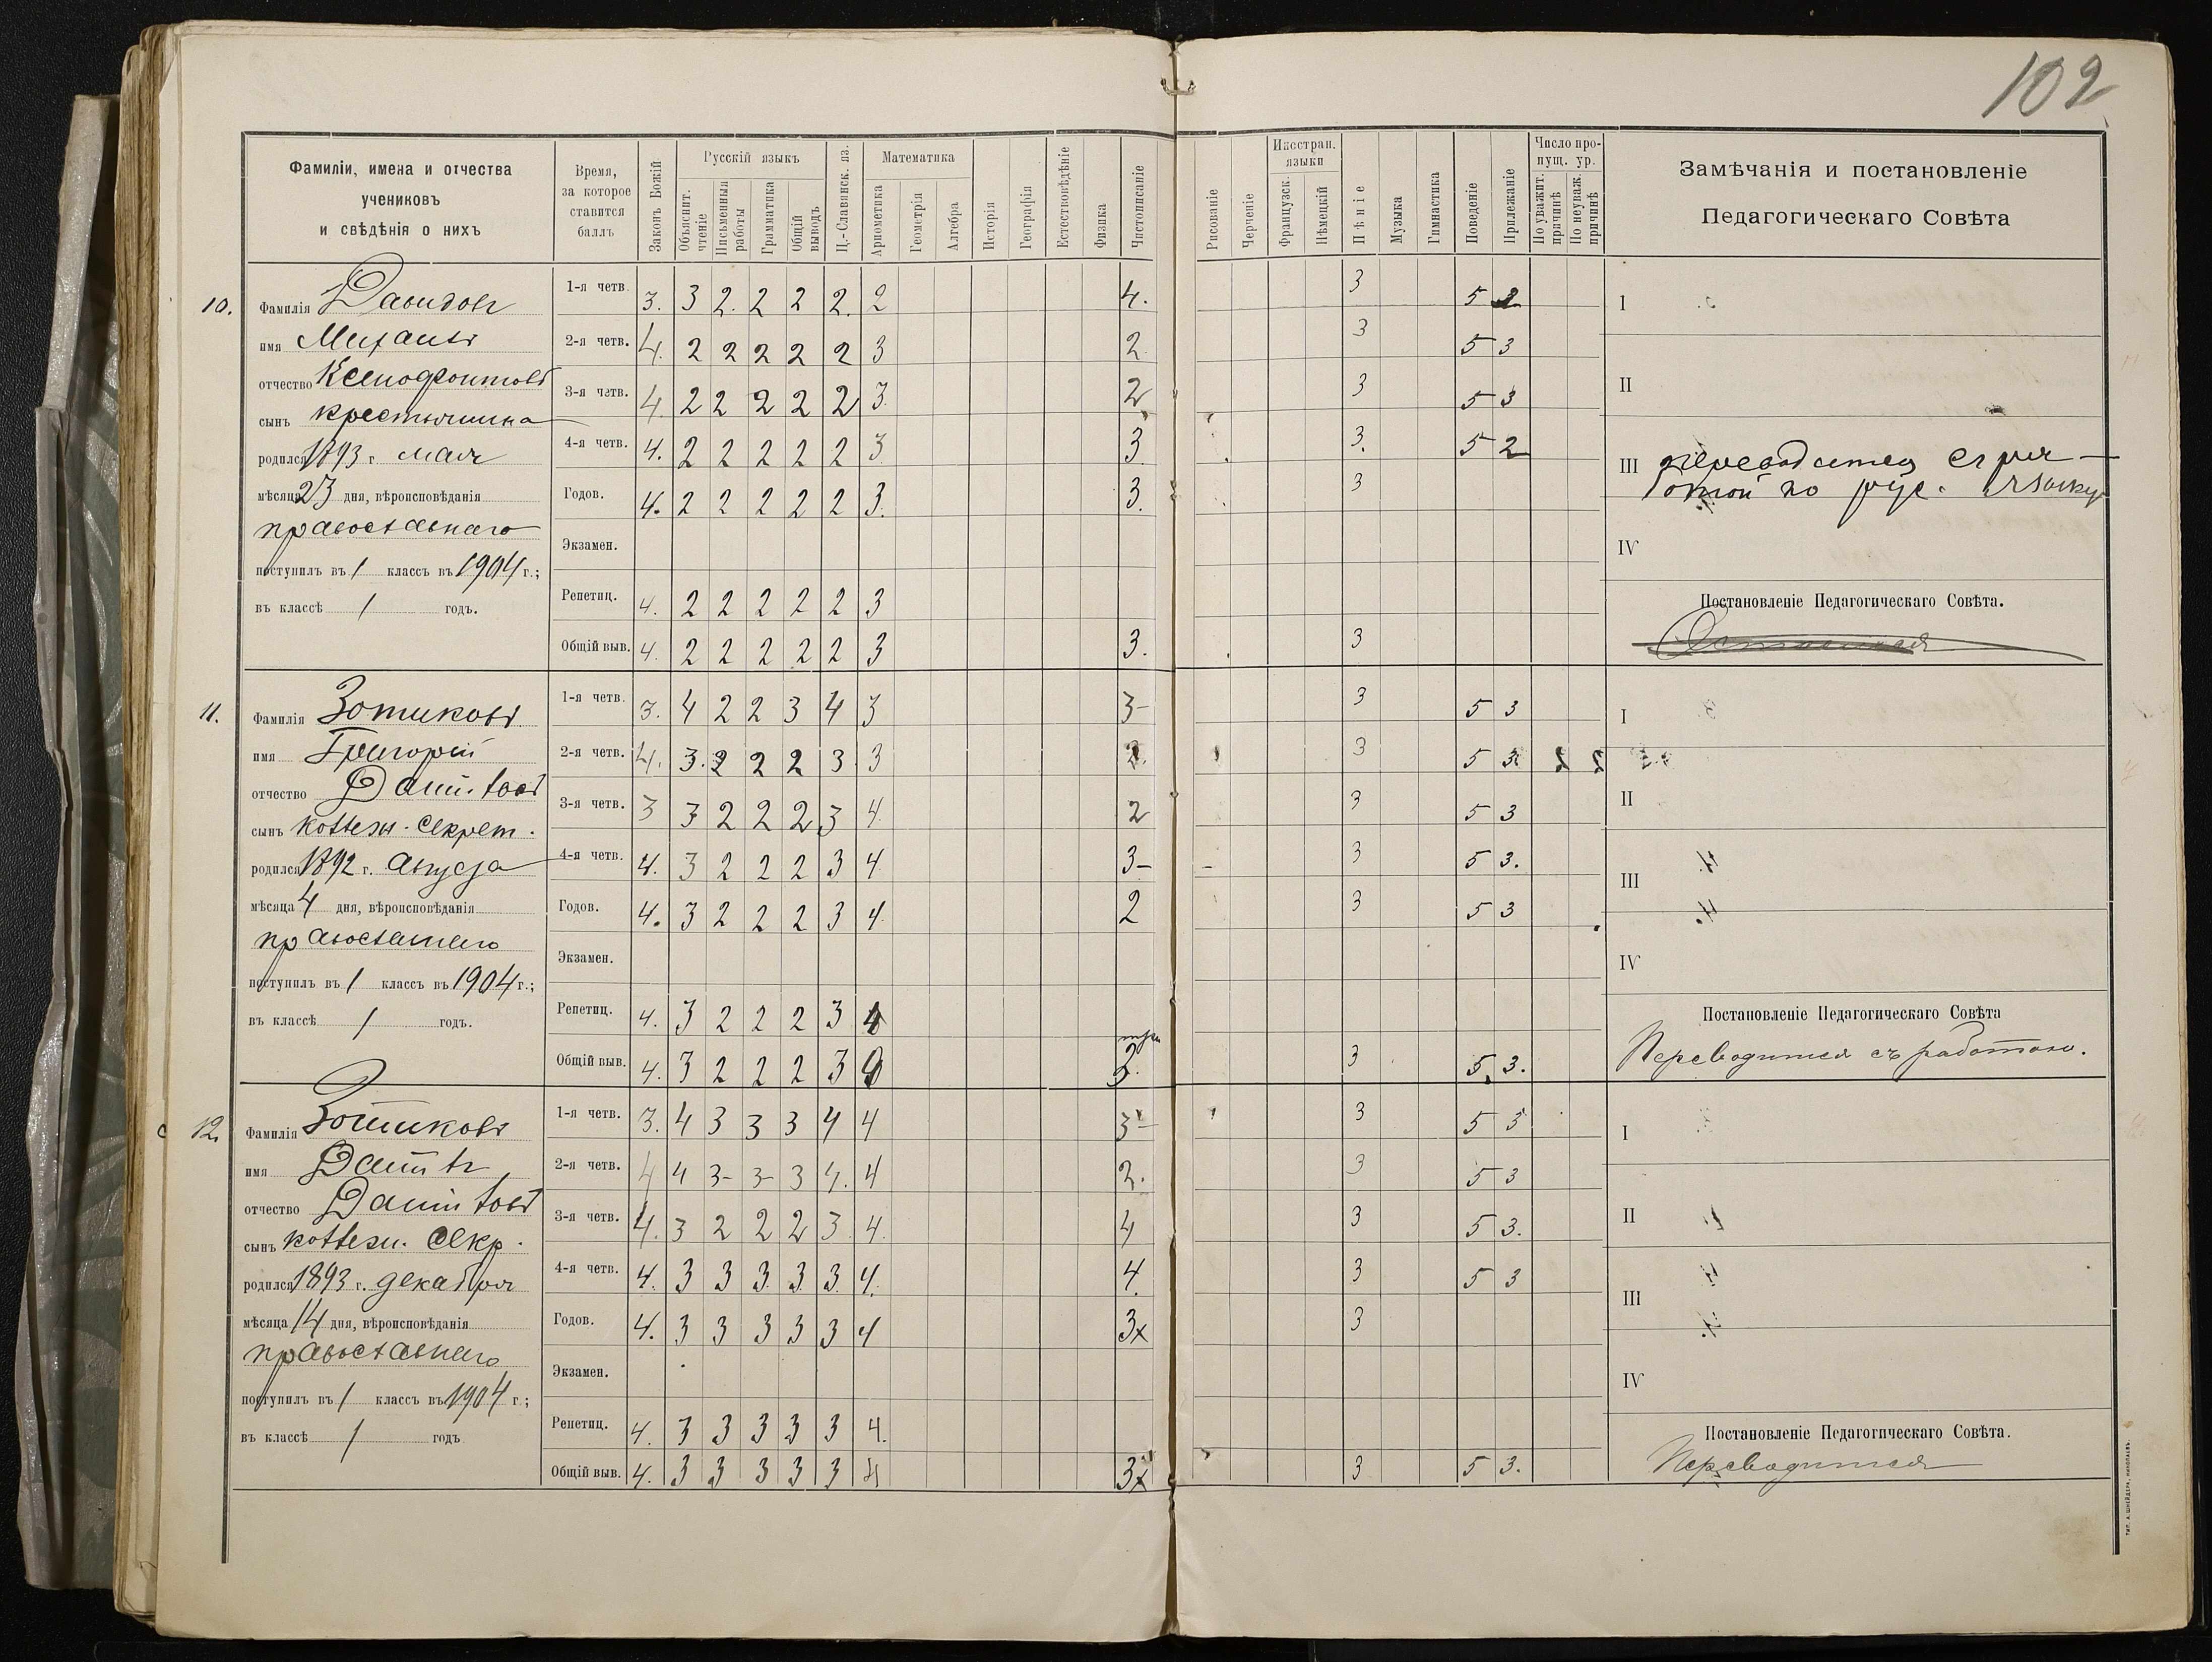 102
Фамиліи, имена и отчества
учениковъ
и свѣдѣнія о нихъ
Время,
за которое
ставится
баллъ
Законъ Божій
Русскій языкъ
Объяснит. чтеніе
Письменныя работы
Грамматика
Общій выводъ
Ц.-Славянск. яз.
Математика
Ариѳметика
Геометрія
Алгебра
Исторія
Географія
Естествовѣдѣніе
Физика
Чистописаніе
Рисованіе
Черченіе
Иностран. языки
Французск.
Нѣмецкій
Пѣніе
Музыка
Гимнастика
Поведеніе
Прилежаніе
Число пропущ. ур.
По уважит. причинѣ
По неуваж. причинѣ
Замѣчанія и постановленіе
Педагогическаго Совѣта
10. Фамилія Давидовъ
имя Михаилъ
отчество Ксенофонтовъ
сынъ крестьянина
родился 1893 г. мая
мѣсяца 23 дня, вѣроисповѣданія
православнаго
поступилъ въ 1 классъ въ 1904 г.;
въ классѣ 1 годъ.
1-я четв. 3. 3 2. 2 2 2. 2 4. 3 5 2
2-я четв. 4. 2 2 2 2 2 3 2 3 5 3
3-я четв. 4. 2 2 2 2 2 3. 2 3 5 3
4-я четв. 4. 2 2 2 2 2 3 3 3. 5 2
Годов. 4. 2 2 2 2 2 3. 3. 3
Экзамен.
Репетиц. 4. 2 2 2 2 2 3
Общій выв. 4. 2 2 2 2 2 3 3. 3
I
II
III переводится съ работой по рус. языку
IV
Постановленіе Педагогическаго Совѣта.
11. Фамилія Зотиковъ
имя Григорій
отчество Даниловъ
сынъ коллежск. секрет.
родился 1892 г. Августа
мѣсяца 4 дня, вѣроисповѣданія
православнаго
поступилъ въ 1 классъ въ 1904 г.;
въ классѣ 1 годъ.
1-я четв. 3. 4 2 2 3 4 3 3- 3 5 3
2-я четв. 4. 3. 2 2 2 3 3 2. 3 5 3
3-я четв. 3 3 2 2 2 3 4. 2 3 5 3
4-я четв. 4. 3 2 2 2 3 4 3- 3 5 3.
Годов. 4. 3 2 2 2 3 4. 2 3 5 3
Экзамен.
Репетиц. 4. 3 2 2 2 3 4
три
Общій выв. 4. 3 2 2 2 3 3. 3 5 3.
I
II
III
IV
Постановленіе Педагогическаго Совѣта
Переводится съ работою.
12. Фамилія Зотиковъ
имя Даніилъ
отчество Даниловъ
сынъ коллежск. секр.
родился 1893 г. декабря
мѣсяца 14 дня, вѣроисповѣданія
православнаго
поступилъ въ 1 классъ въ 1904 г.;
въ классѣ 1 годъ
1-я четв. 3. 4 3 3 3 4 4 3- 3 5 3
2-я четв. 4 4 3- 3- 3 4. 4 2. 3 5 3
3-я четв. 4. 3 2 2 2 3 4. 4 3 5 3.
4-я четв. 4. 3 3 3 3 3. 4. 4. 3 5 3
Годов. 4. 3 3 3 3 3 4 3х 3
Экзамен.
Репетиц. 4. 3 3 3 3 3 4.
Общій выв. 4. 3 3 3 3 3 4 3х 3 5 3.
I
II
III
IV
Постановленіе Педагогическаго Совѣта.
Переводится